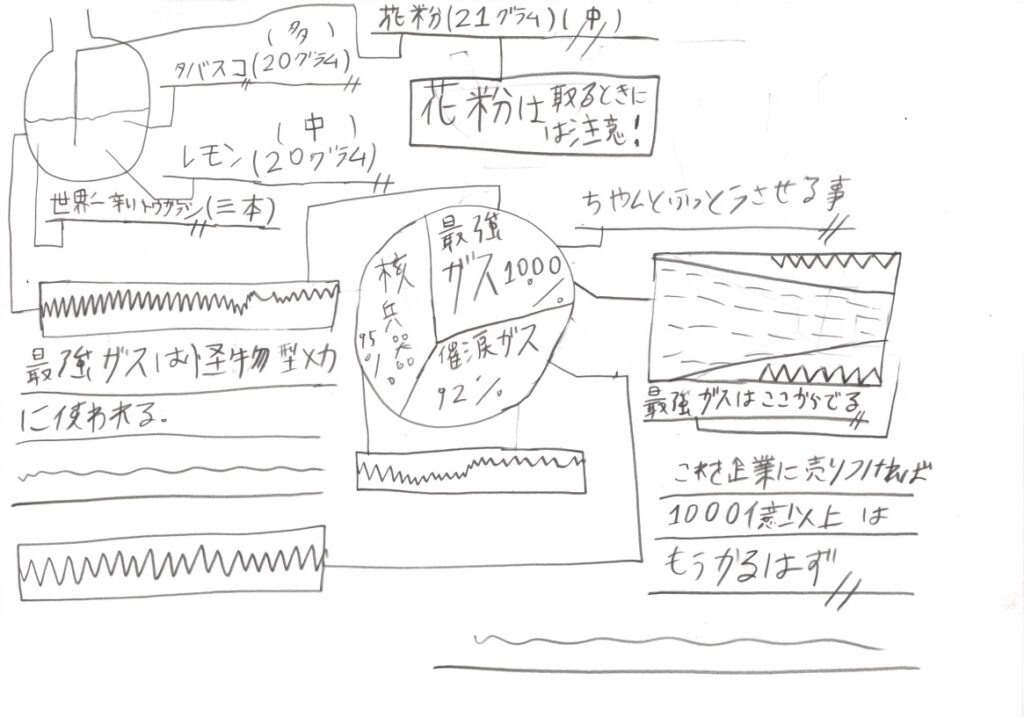 花粉(21グラム)(中)
(多)
タバスコ(20グラム)
花粉は取るときに
は注意!
(中)
レモン(20グラム)
世界一辛いトウガラシ(三本)
ちゃんとふっとうさせる事
最強
ガス1000%
核兵器
95%
催涙ガス
92%
最強ガスは怪物型メカ
に使われる。
最強ガスはここからでる
これを企業に売りつければ
1000億以上は
もうかるはず